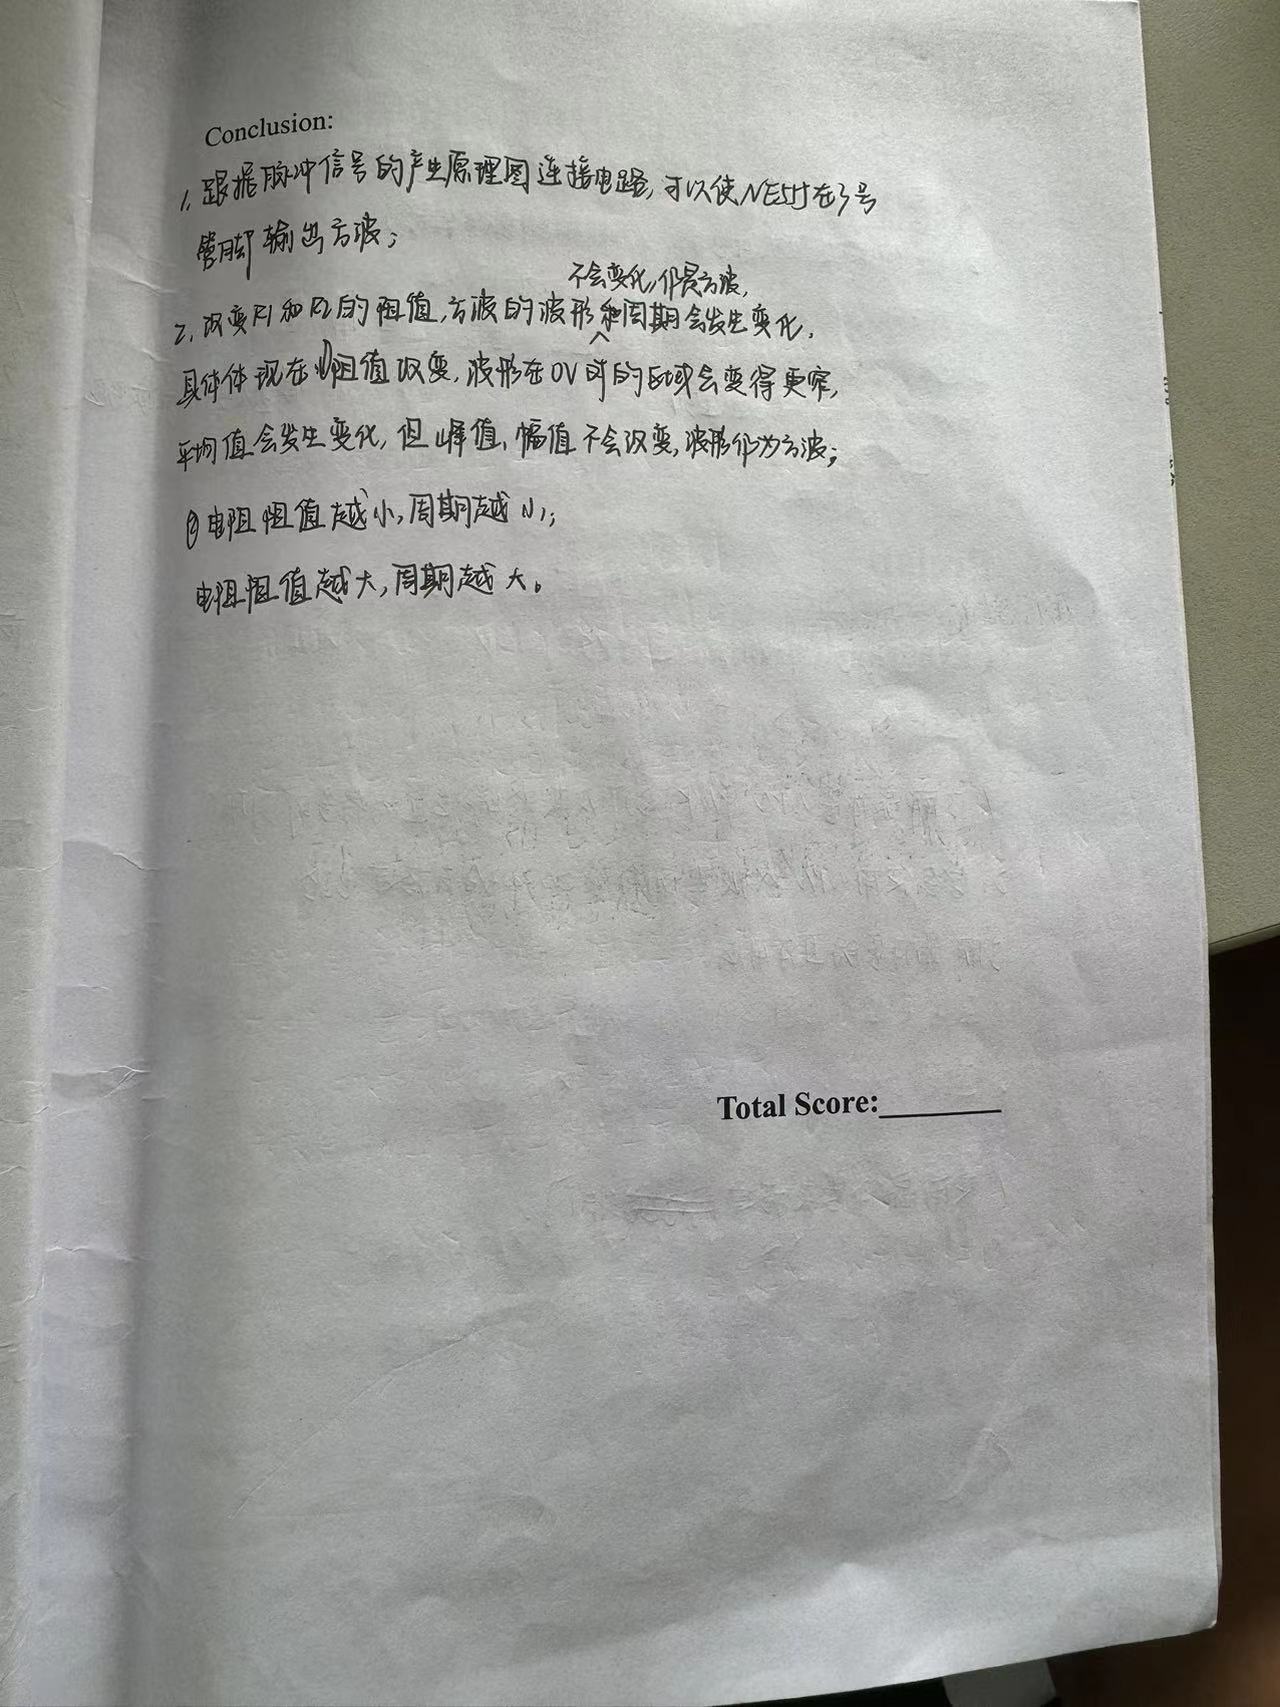 Conclusion:
1. 跟据脉冲信号的产生原理图连接电路,可以使NE555在3号
管脚输出方波;
不会变化,仍是方波,
2. 改变R1和R2的阻值,方波的波形和周期会发生变化,
具体体现在①阻值改变,波形在0V时的区域会变得更窄,
平均值会发生变化,但峰值、幅值不会改变,波形仍为方波;
②电阻阻值越小,周期越小;
电阻阻值越大,周期越大。
Total Score: